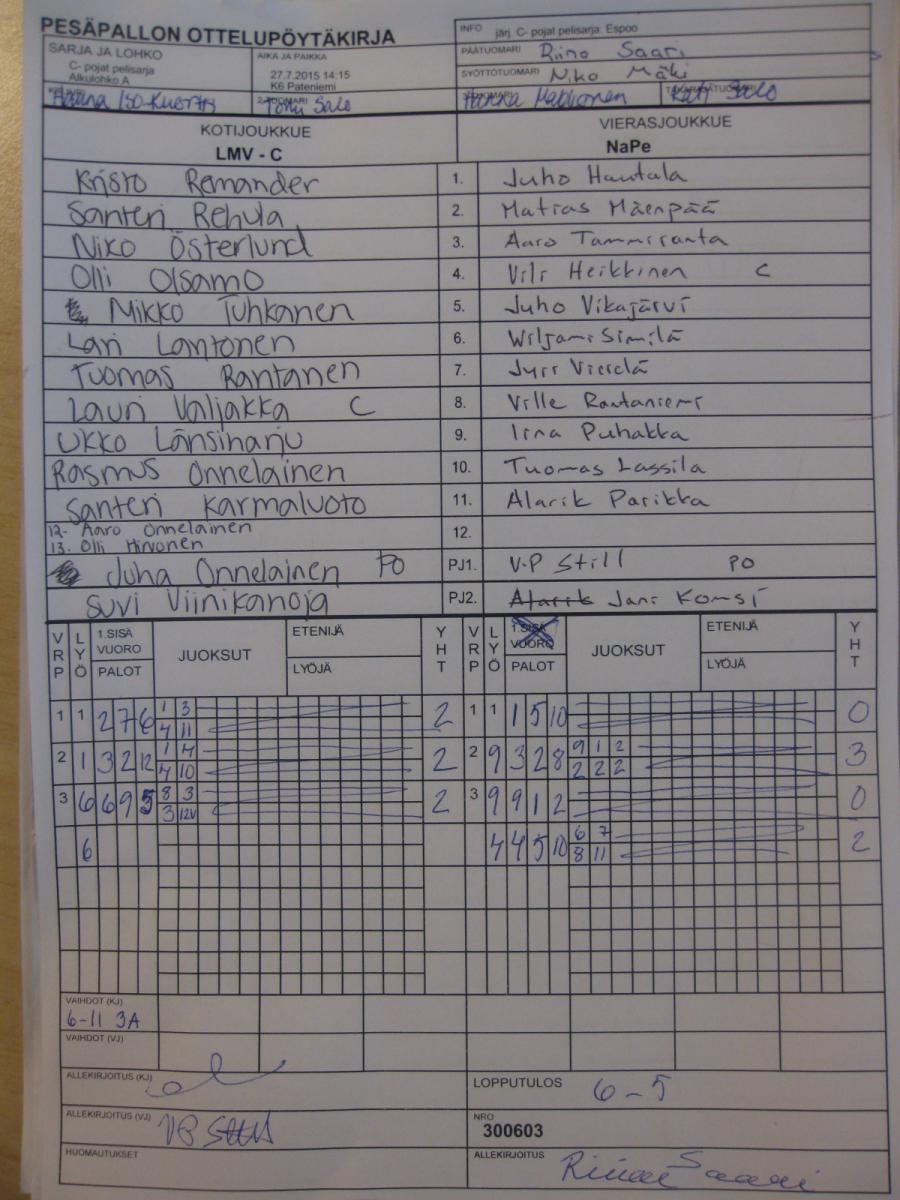 PESÄPALLON OTTELUPÖYTÄKIRJA
INFO järj. C- pojat pelisarja: Espoo
SARJA JA LOHKO
C- pojat pelisarja
Alkulohko A
AIKA JA PAIKKA
27.7.2015 14:15
K6 Pateniemi
PÄÄTUOMARI Riina Saari
SYÖTTÖTUOMARI Niko Mäki
Hanna Iso-Kuortti
2-TUOMARI Tomi Salo
Salo
KOTIJOUKKUE
LMV - C
VIERASJOUKKUE
NaPe
Kristo Remander 1. Juho Hautala
Santeri Rehula 2. Matias Mäenpää
Niko Österlund 3. Aaro Tammiranta
Olli Olsamo 4. Vili Heikkinen C
Mikko Tuhkanen 5. Juho Vikajärvi
Lari Lantonen 6. Wiljami Similä
Tuomas Rantanen 7. Jyri Vierelä
Lauri Valjakka C 8. Ville Rautaniemi
Ukko Länsiharju 9. Iina Puhakka
Rasmus Onnelainen 10. Tuomas Lassila
Santeri Karmaluoto 11. Alarik Parikka
12- Aaro Onnelainen 12.
13. Olli Hirvonen
Juha Onnelainen PO PJ1. V-P Still PO
Suvi Viinikanoja PJ2. Alarik Jani Komsi
VRP LYÖ 1.SISÄ VUORO PALOT JUOKSUT ETENIJÄ LYÖJÄ YHT VRP LYÖ 1.SISÄ VUORO PALOT JUOKSUT ETENIJÄ LYÖJÄ YHT
1 1 2 7 6 1 3 2 1 1 1 5 10 0
4 11
2 1 3 2 12 1 4 2 2 9 3 2 8 9 1 2 3
4 10 2 2 2
3 6 6 9 5 8 3 2 3 9 9 1 2 0
3 12V
6 4 4 5 10 6 7 2
8 11
VAIHDOT (KJ)
6-11 3A
VAIHDOT (VJ)
ALLEKIRJOITUS (KJ)
LOPPUTULOS 6-5
ALLEKIRJOITUS (VJ)
NRO
300603
HUOMAUTUKSET
ALLEKIRJOITUS Riina Saari